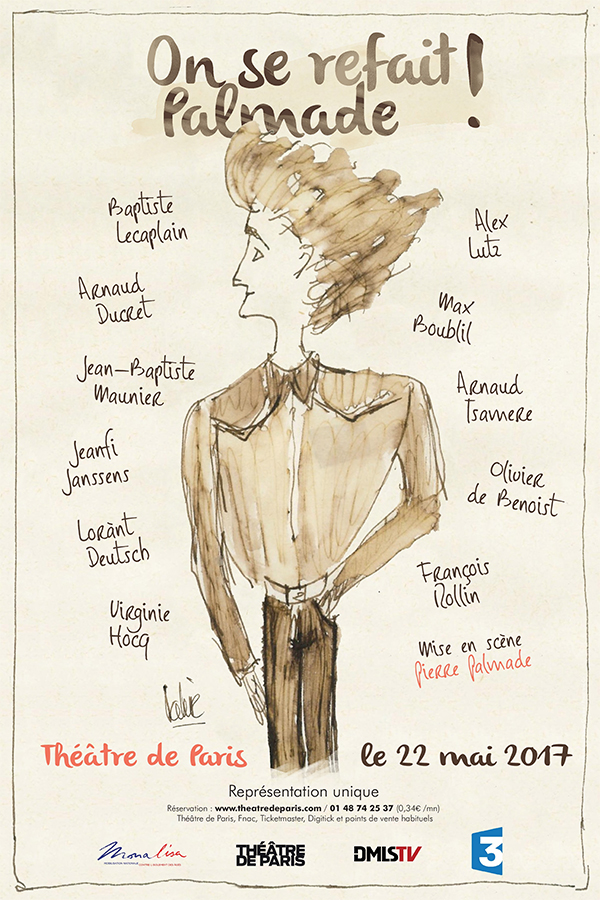 On se refait
Palmade !
Baptiste
Lecaplain
Arnaud
Ducret
Jean-Baptiste
Maunier
Jeanfi
Janssens
Lorànt
Deutsch
Virginie
Hocq
Alex
Lutz
Max
Boublil
Arnaud
Tsamere
Olivier
de Benoist
François
Rollin
Mise en scène
Pierre Palmade
Théâtre de Paris
le 22 mai 2017
Représentation unique
Réservation : www.theatredeparis.com / 01 48 74 25 37 (0,34€ /mn)
Théâtre de Paris, Fnac, Ticketmaster, Digitick et points de vente habituels
Monalisa
MOBILISATION NATIONALE CONTRE L'ISOLEMENT DES ÂGÉS
THÉÂTRE
DE PARIS
DMLSTV
3